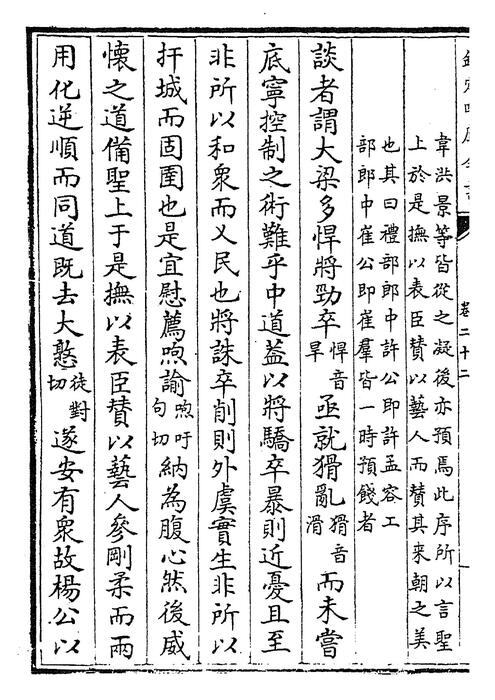 卷二十二
韋洪景等皆從之凝後亦預焉此序所以言聖
上於是撫以表臣賛以藝人而賛其来朝之美
也其曰禮部郎中許公即許孟容工
部郎中崔公即崔羣皆一時預餞者
談者謂大梁多悍將勁卒悍音旱亟就猾亂猾音滑而未嘗
底寧控制之術難乎中道葢以將驕卒暴則近憂且至
非所以和衆而乂民也將誅卒削則外虞實生非所以
扞城而固圉也是宜慰薦喣諭喣吁句切納為腹心然後威
懐之道備聖上于是撫以表臣賛以藝人參剛柔而兩
用化逆順而同道既去大憝徒對切遂安有衆故楊公以